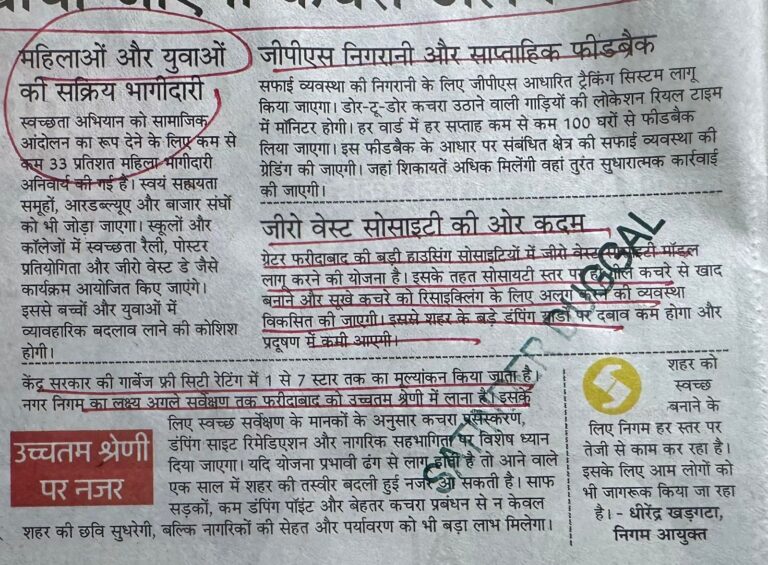 महिलाओं और युवाओं
की सक्रिय भागीदारी
स्वच्छता अभियान को सामाजिक
आंदोलन का रूप देने के लिए कम से
कम 33 प्रतिशत महिला भागीदारी
अनिवार्य की गई है। स्वयं सहायता
समूहों, आरडब्ल्यूए और बाजार संघों
को भी जोड़ा जाएगा। स्कूलों और
कॉलेजों में स्वच्छता रैली, पोस्टर
प्रतियोगिता और जीरो वेस्ट डे जैसे
कार्यक्रम आयोजित किए जाएंगे।
इससे बच्चों और युवाओं में
व्यावहारिक बदलाव लाने की कोशिश
होगी।
जीपीएस निगरानी और साप्ताहिक फीडबैक
सफाई व्यवस्था की निगरानी के लिए जीपीएस आधारित ट्रैकिंग सिस्टम लागू
किया जाएगा। डोर-टू-डोर कचरा उठाने वाली गाड़ियों की लोकेशन रियल टाइम
में मॉनिटर होगी। हर वार्ड में हर सप्ताह कम से कम 100 घरों से फीडबैक
लिया जाएगा। इस फीडबैक के आधार पर संबंधित क्षेत्र की सफाई व्यवस्था की
ग्रेडिंग की जाएगी। जहां शिकायतें अधिक मिलेंगी वहां तुरंत सुधारात्मक कार्रवाई
की जाएगी।
जीरो वेस्ट सोसाइटी की ओर कदम
ग्रेटर फरीदाबाद की बड़ी हाउसिंग सोसाइटियों में जीरो वेस्ट मॉडल
लागू करने की योजना है। इसके तहत सोसायटी स्तर पर ही गीले कचरे से खाद
बनाने और सूखे कचरे को रिसाइक्लिंग के लिए अलग करने की व्यवस्था
विकसित की जाएगी। इससे शहर के बड़े डंपिंग यार्डों पर दबाव कम होगा और
प्रदूषण में कमी आएगी।
केंद्र सरकार की गार्बेज फ्री सिटी रेटिंग में 1 से 7 स्टार तक का मूल्यांकन किया जाता है।
नगर निगम का लक्ष्य अगले सर्वेक्षण तक फरीदाबाद को उच्चतम श्रेणी में लाना है। इसके
लिए स्वच्छ सर्वेक्षण के मानकों के अनुसार कचरा प्रसंस्करण,
डंपिंग साइट रिमेडिएशन और नागरिक सहभागिता पर विशेष ध्यान
दिया जाएगा। यदि योजना प्रभावी ढंग से लागू होती है तो आने वाले
एक साल में शहर की तस्वीर बदली हुई नजर आ सकती है। साफ
सड़कों, कम डंपिंग पॉइंट और बेहतर कचरा प्रबंधन से न केवल
शहर की छवि सुधरेगी, बल्कि नागरिकों की सेहत और पर्यावरण को भी बड़ा लाभ मिलेगा।
उच्चतम श्रेणी
पर नजर
शहर को
स्वच्छ
बनाने के
लिए निगम हर स्तर पर
तेजी से काम कर रहा है।
इसके लिए आम लोगों को
भी जागरूक किया जा रहा
है। - धीरेंद्र खड़गटा,
निगम आयुक्त
SATINDER DUGGAL